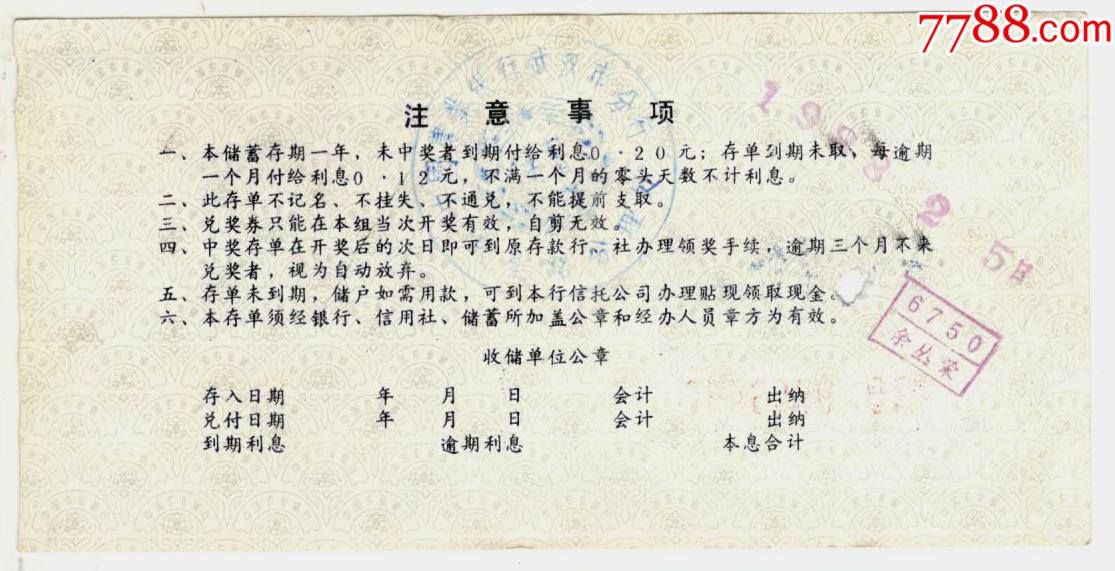 7788.com
注意事项
一、本储蓄存期一年，未中奖者到期付给利息0·20元；存单到期未取、每逾期
一个月付给利息0·12元，不满一个月的零头天数不计利息。
二、此存单不记名、不挂失、不通兑，不能提前支取。
三、兑奖券只能在本组当次开奖有效，自剪无效。
四、中奖存单在开奖后的次日即可到原存款行、社办理领奖手续，逾期三个月不来
兑奖者，视为自动放弃。
五、存单未到期，储户如需用款，可到本行信托公司办理贴现领取现金。
六、本存单须经银行、信用社、储蓄所加盖公章和经办人员章方为有效。
6750
收储单位公章
存入日期 年 月 日 会计 出纳
兑付日期 年 月 日 会计 出纳
到期利息 逾期利息 本息合计